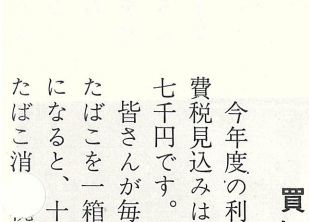 買
今年度の利
費税見込みは
七千円です。
皆さんが毎
たばこを一箱
になると、十
たばこ消